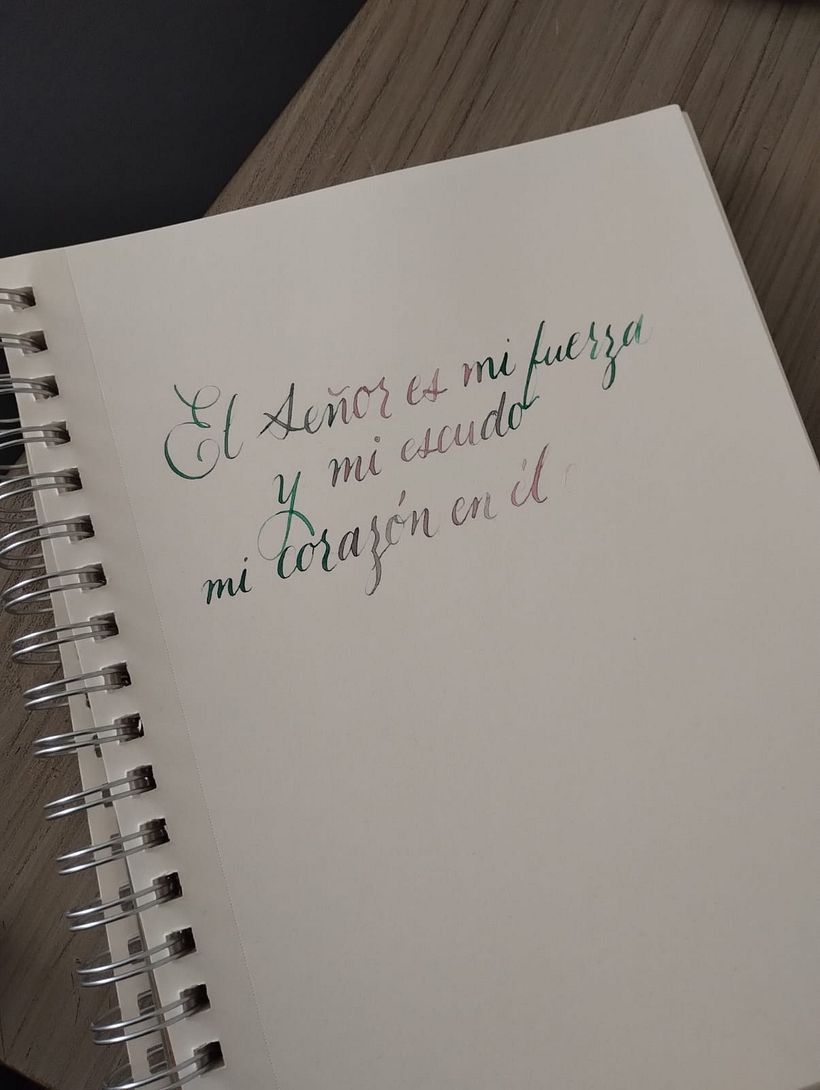 El Señor es mi fuerza
y mi escudo
mi corazón en él